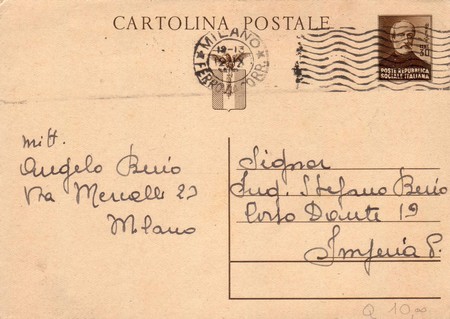 CARTOLINA POSTALE
MILANO
19-13
FERROVIA CORR.
30
POSTE REPUBBLICA
SOCIALE ITALIANA
mitt.
Angelo Berio
Via Mercalli 23
Milano
Signor
Ing. Stefano Berio
Corso Dante 19
Imperia P.
Q 10,00